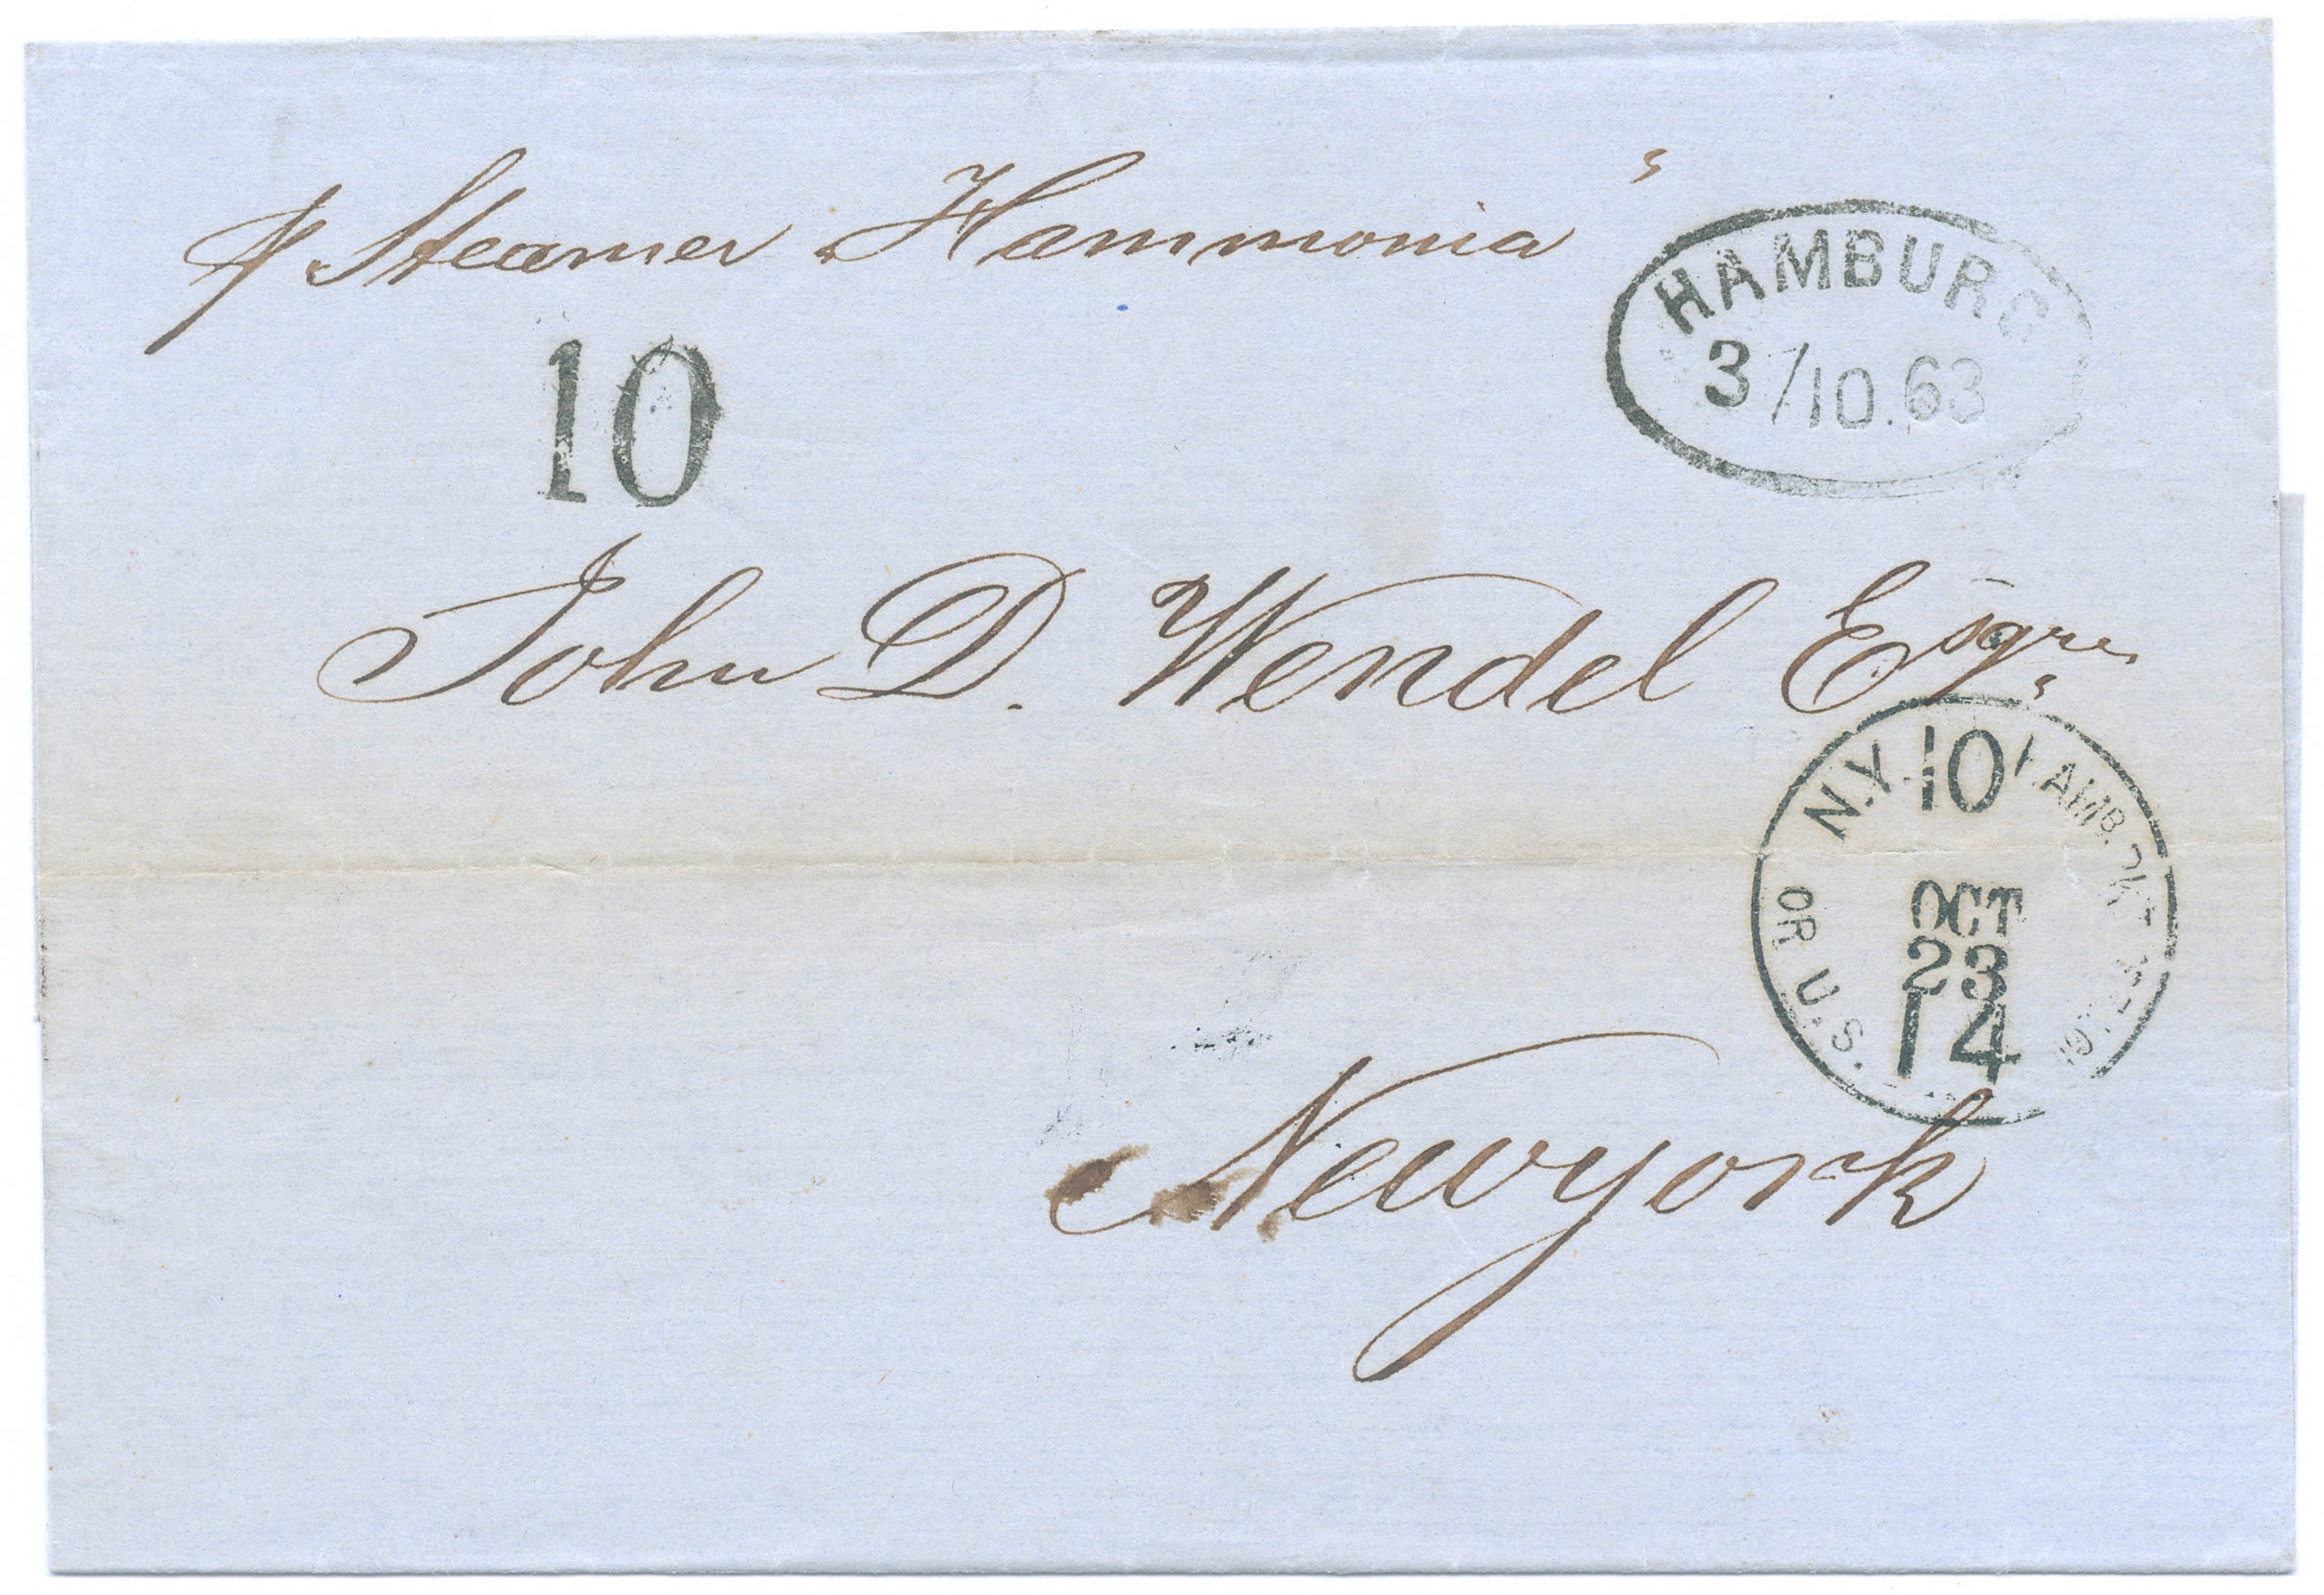 p Steamer „Hammonia"
HAMBURG
3/10.63
10
John D. Wendel Esqre,
N.Y. 10 HAMB. PKT
OCT
23
14
OR U.S.
Newyork